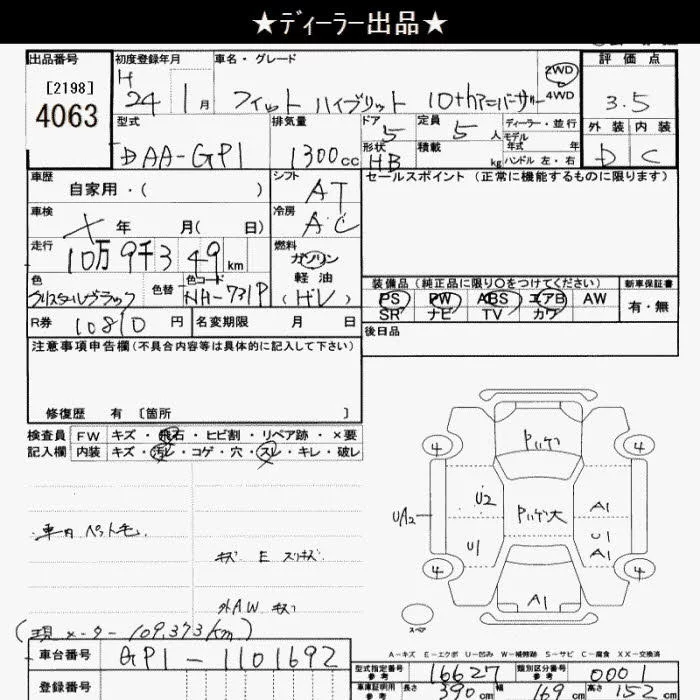 ★ディーラー出品★
出品番号
[2198]
4063
初度登録年月
H
24 1月
車名・グレード
フィット ハイブリット 10thアニバーサリー
2WD
4WD
評価点
3.5
型式
DAA-GP1
排気量
1300cc
ドア
5
定員
5人
ディーラー・並行
モデル
年式 年
形状
HB
積載
kg
ハンドル 左・右
外装 内装
D C
車歴
自家用・( )
シフト
AT
セールスポイント(正常に機能するものに限ります)
車検
年 月( 日)
冷房
AC
走行
10万9千3 49 km
燃料
ガソリン
軽油
(HV)
色
クリスタルブラック
色替
色コード
NH-731P
装備品(純正品に限り○をつけてください)
PS PW ABS エアB AW
SR ナビ TV カワ
新車保証書
有・無
R券
10810円
名変期限 月 日
後日品
注意事項申告欄(不具合内容等は具体的に記入して下さい)
修復歴 有 [箇所 ]
検査員
記入欄
FW キズ・飛石・ヒビ割・リペア跡・×要
内装 キズ・汚レ・コゲ・穴・スレ・キレ・破レ
車内 ペット毛
キズ E スリキズ
外AW キズ
(現メーター 109,373km)
4
4
4
4
U2
UA2
U1
A1
U1
A1
A1
スペア
A-キズ E-エクボ U-凹み W-補修跡 S-サビ C-腐食 XX-交換済
車台番号
GP1-1101692
登録番号
型式指定番号
参考
16627
類別区分番号
参考
0001
車車証明用
参考
長さ 390cm
幅 169cm
高さ 152cm